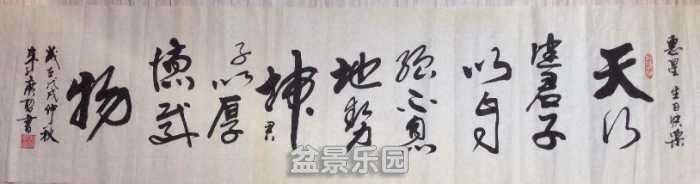 惠星生日快乐
天行
健君子
以自
强不息
地势
坤君
子以厚
德载
物
岁在戊戌仲秋
书
盆景乐园